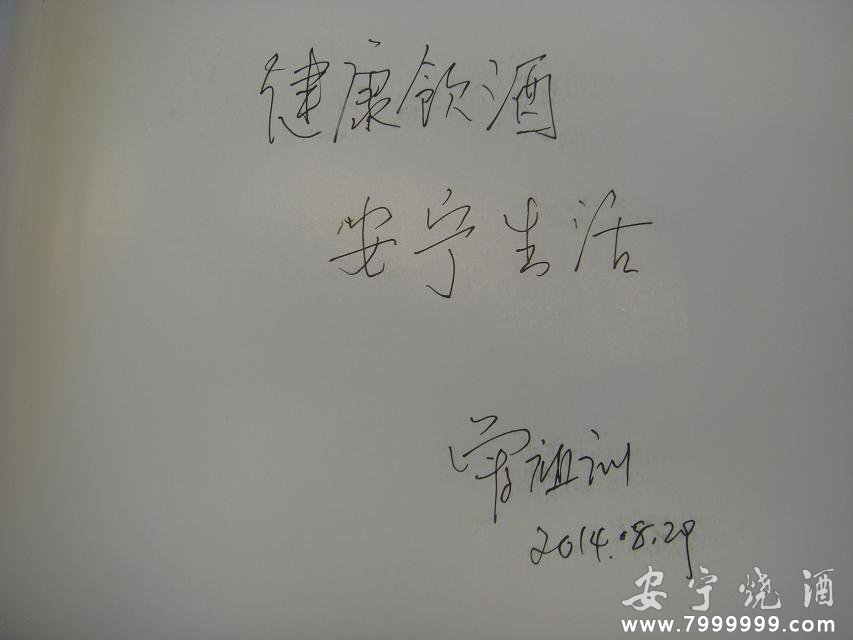 健康飲酒
安宁生活
曾祖训
2014.8.29
安宁烧酒
www.7999999.com